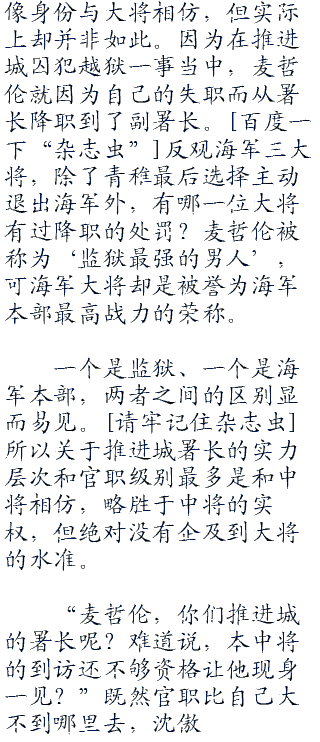 像身份与大将相仿，但实际
上却并非如此。因为在推进
城囚犯越狱一事当中，麦哲
伦就因为自己的失职而从署
长降职到了副署长。[百度一
下“杂志虫”]反观海军三大
将，除了青稚最后选择主动
退出海军外，有哪一位大将
有过降职的处罚？麦哲伦被
称为‘监狱最强的男人’，
可海军大将却是被誉为海军
本部最高战力的荣称。
一个是监狱、一个是海
军本部，两者之间的区别显
而易见。[请牢记住杂志虫]
所以关于推进城署长的实力
层次和官职级别最多是和中
将相仿，略胜于中将的实
权，但绝对没有企及到大将
的水准。
“麦哲伦，你们推进城
的署长呢？难道说，本中将
的到访还不够资格让他现身
一见？”既然官职比自己大
不到哪里去，沈傲